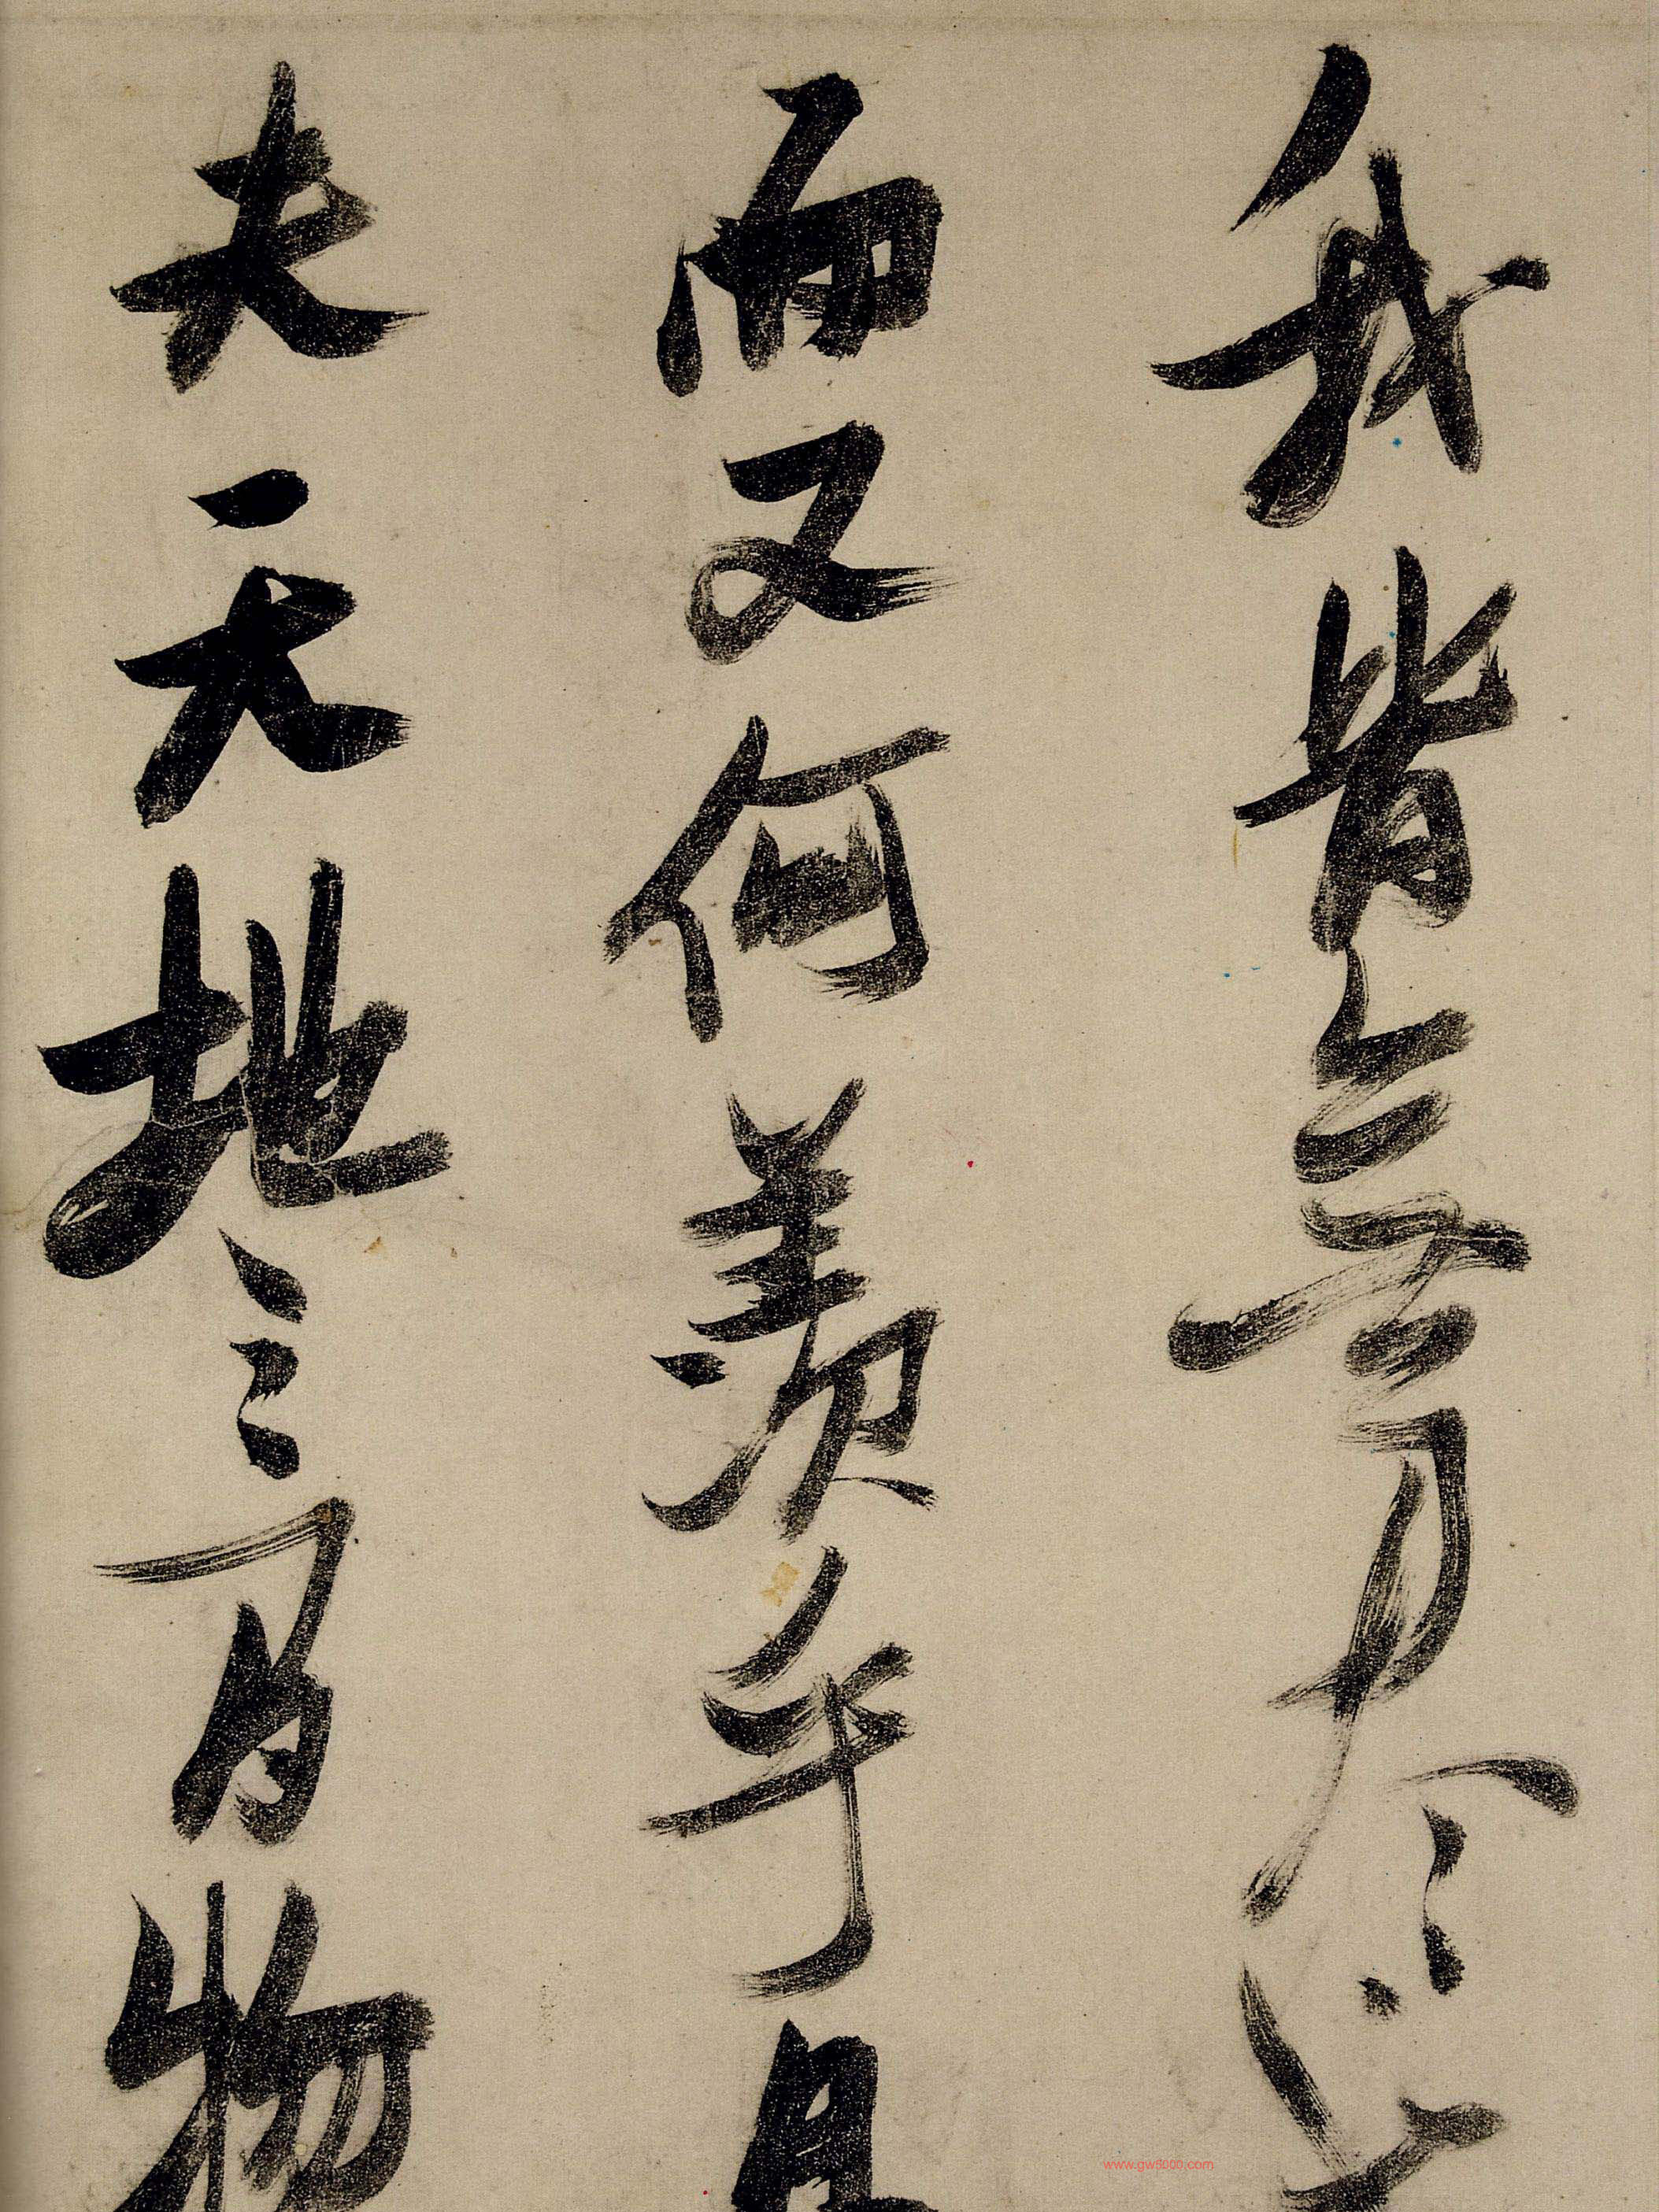 我皆無盡也
而又何羨乎且
夫天地之間物
www.gw5000.com